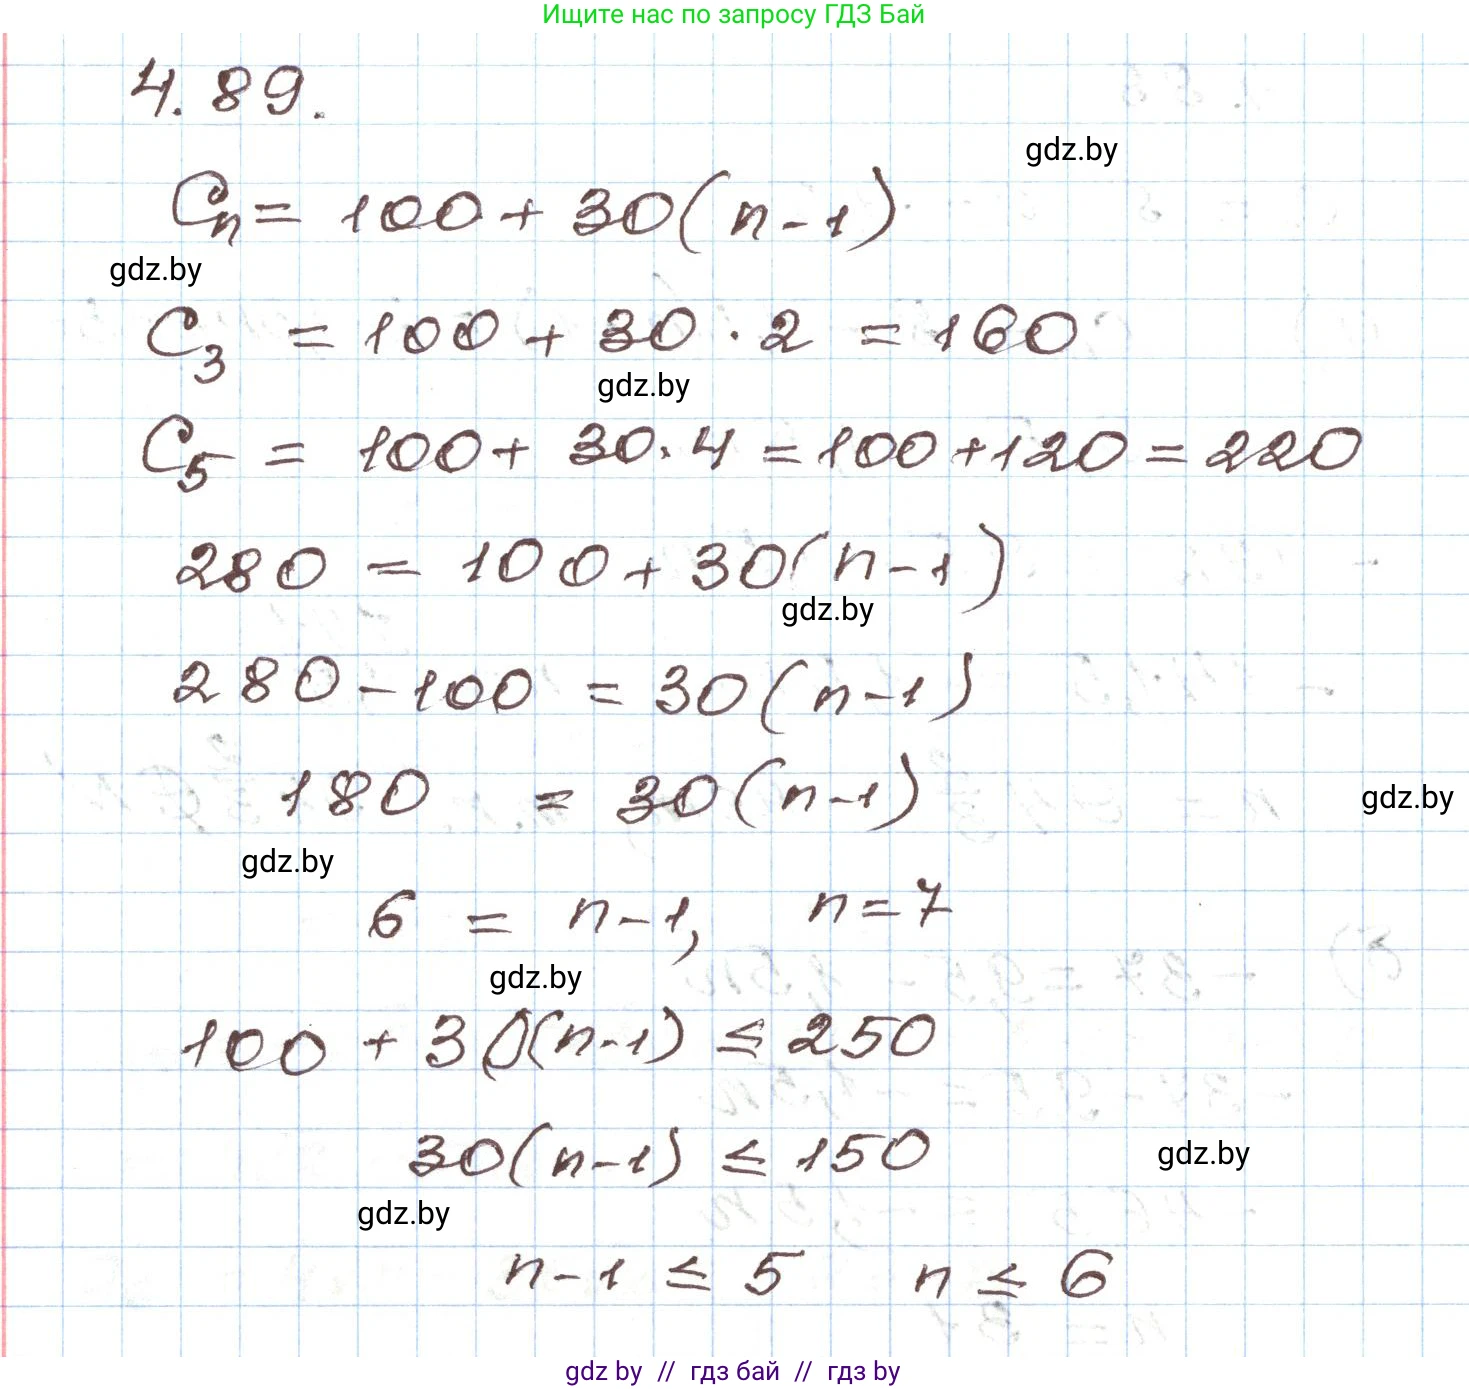 Ищите нас по запросу ГДЗ Бай
4.89.
gdz.by
Cn = 100 + 30(n-1)
gdz.by
C3 = 100 + 30 · 2 = 160
gdz.by
C5 = 100 + 30·4 = 100+120 = 220
280 = 100 + 30(n-1)
gdz.by
280 - 100 = 30(n-1)
180 = 30(n-1)
gdz.by
gdz.by
6 = n-1, n=7
gdz.by
100 + 30(n-1) ≤ 250
30(n-1) ≤ 150
gdz.by
gdz.by
n-1 ≤ 5 n ≤ 6
gdz by // гдз бай // гдз by